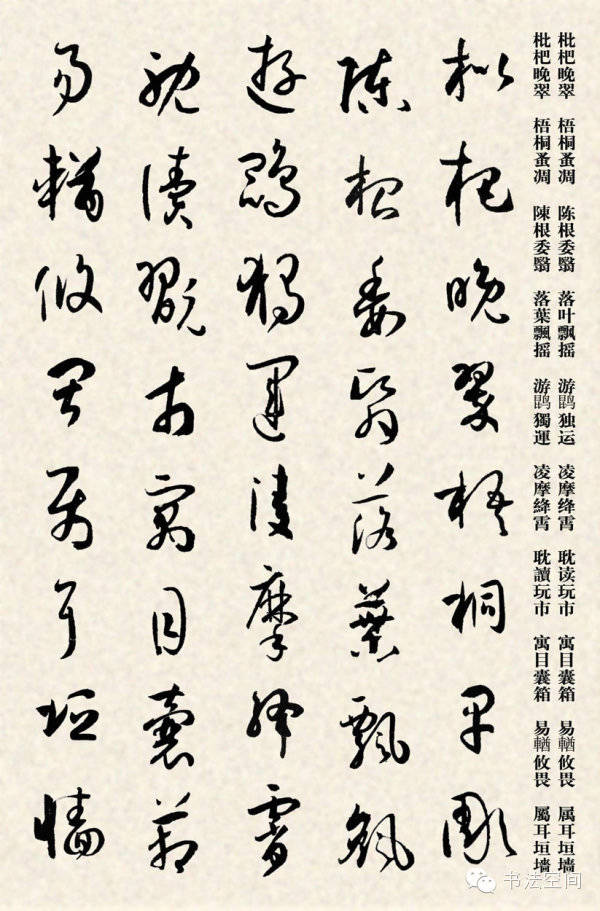 枇杷晚翠 梧桐蚤凋 陈根委翳 落叶飘摇 游鹍独运 凌摩绛霄 耽读玩市 寓目囊箱 易輶攸畏 属耳垣墙
枇杷晚翠 梧桐蚤凋 陳根委翳 落葉飄摇 游鹍獨運 凌摩絳霄 耽讀玩市 寓目囊箱 易輶攸畏 屬耳垣墙
枇杷晚翠梧桐早彫
陳根委翳落葉飄颻
遊鵾獨運凌摩絳霄
耽讀翫市寓目囊箱
易輶攸畏屬耳垣牆
书法空间